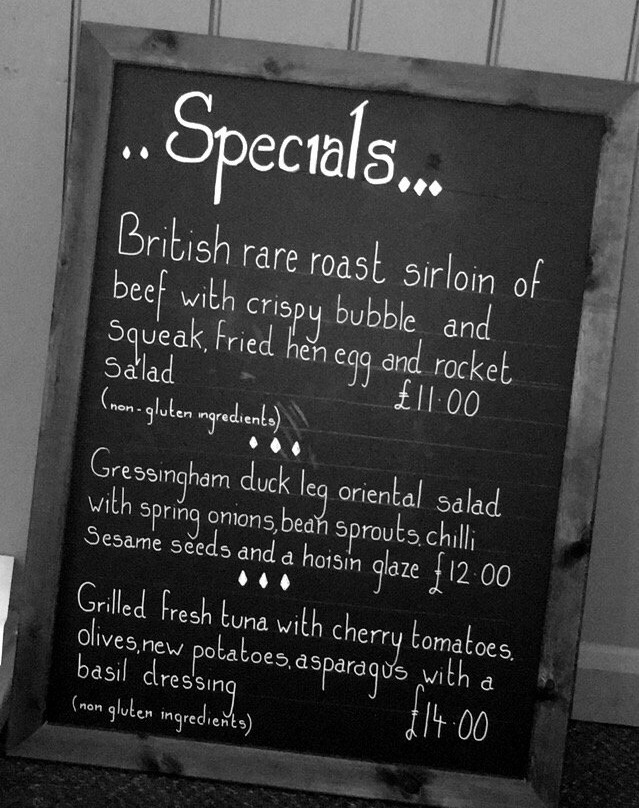 ..Specials...
British rare roast sirloin of
beef with crispy bubble and
Squeak, fried hen egg and rocket
Salad £11.00
(non-gluten ingredients)
Gressingham duck leg oriental salad
with spring onions, bean sprouts, chilli
Sesame seeds and a hoisin glaze £12.00
Grilled fresh tuna with cherry tomatoes,
olives, new potatoes, asparagus with a
basil dressing £14.00
(non gluten ingredients)